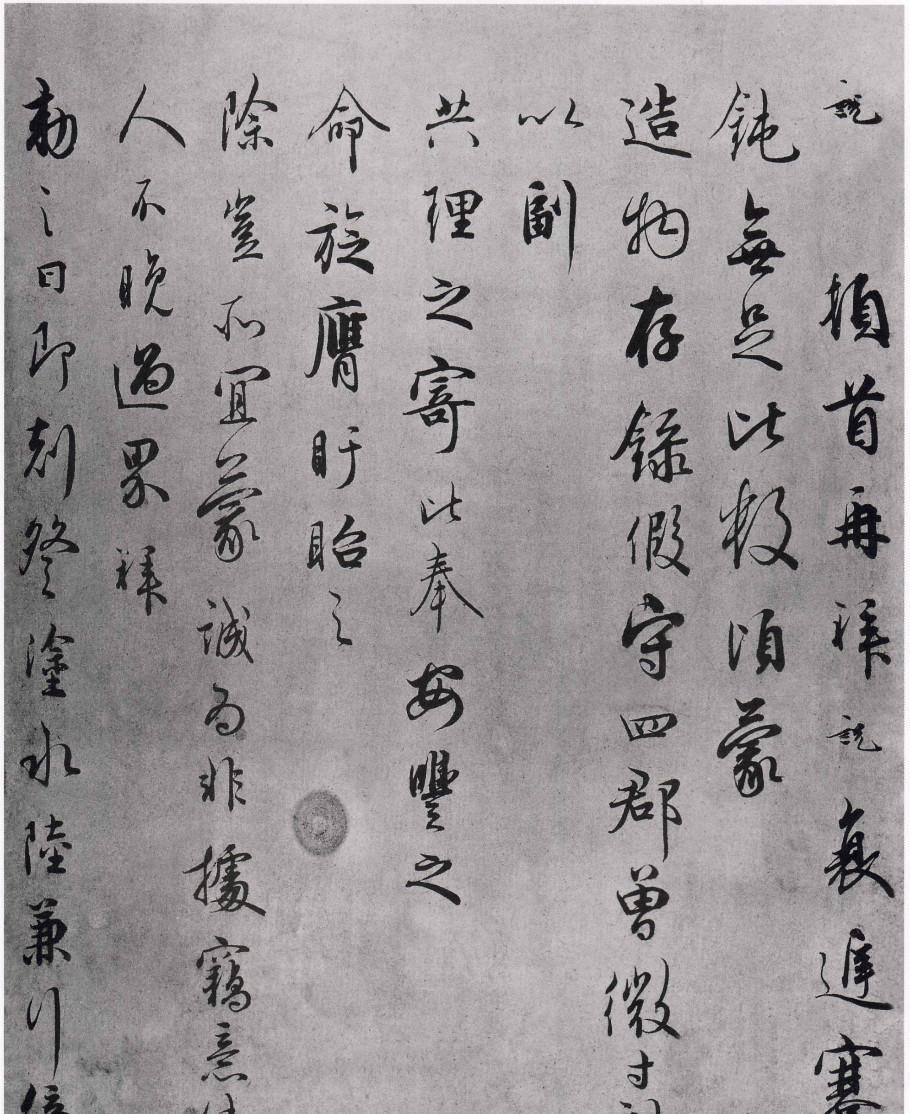 説頓首再拜説衰遲蹇
鈍無足比數須蒙
造物存錄假守四郡曾微寸
以副
共理之寄比奉安豐之
命旋膺盱眙之
除豈所宜蒙誠為非據竊意
人不晚過界拜
勅之日即刻登塗水陸兼行